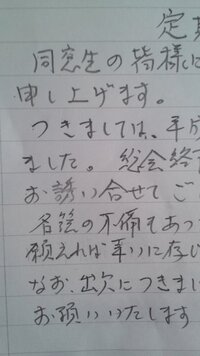 定期
同窓生の皆様に
申し上げます。
つきましては、平成
ました。総会終了
お誘い合せてご
名簿の不備もあっ
願えれば幸いに存じ
なお、出欠につきまし
お願いいたします